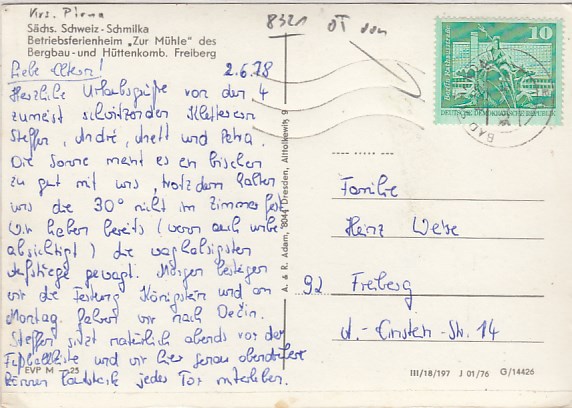 Krs. Pirna
Sächs. Schweiz-Schmilka
Betriebsferienheim „Zur Mühle" des
Bergbau- und Hüttenkomb. Freiberg
8321 OT von
10
DEUTSCHE DEMOKRATISCHE REPUBLIK
BAD
Liebe Eltern! 2.6.78
Herzliche Urlaubsgrüße von den 4
zumeist schwitzenden Kletterern
Steffen, André, Anett und Petra.
Die Sonne meint es ein bißchen
zu gut mit uns, trotzdem halten
uns die 30° nicht im Zimmer fest.
Wir haben bereits (wenn auch unbe-
absichtigt) die waghalsigsten
Aufstiege gewagt. Morgen besteigen
wir die Festung Königstein und am
Montag fahren wir nach Dečin.
Steffen sitzt natürlich abends vor der
Fußballkiste und wir hier
können lautstark jedes Tor miterleben.
EVP M –,25
A. & R. Adam, 8044 Dresden, Altholkewitz 9
Familie
Heinz Weise
92 Freiberg
-Str. 14
III/18/197 J 01/76 G/14426